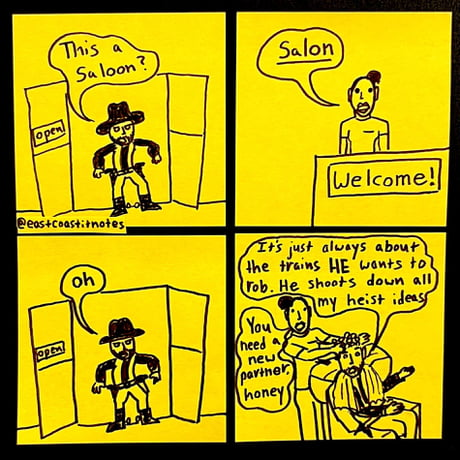 This a
Saloon?
open
@eastcoastitnotes
Salon
Welcome!
oh
open
It's just always about
the trains HE wants to
rob. He shoots down all
my heist ideas
You
need a
new
partner,
honey